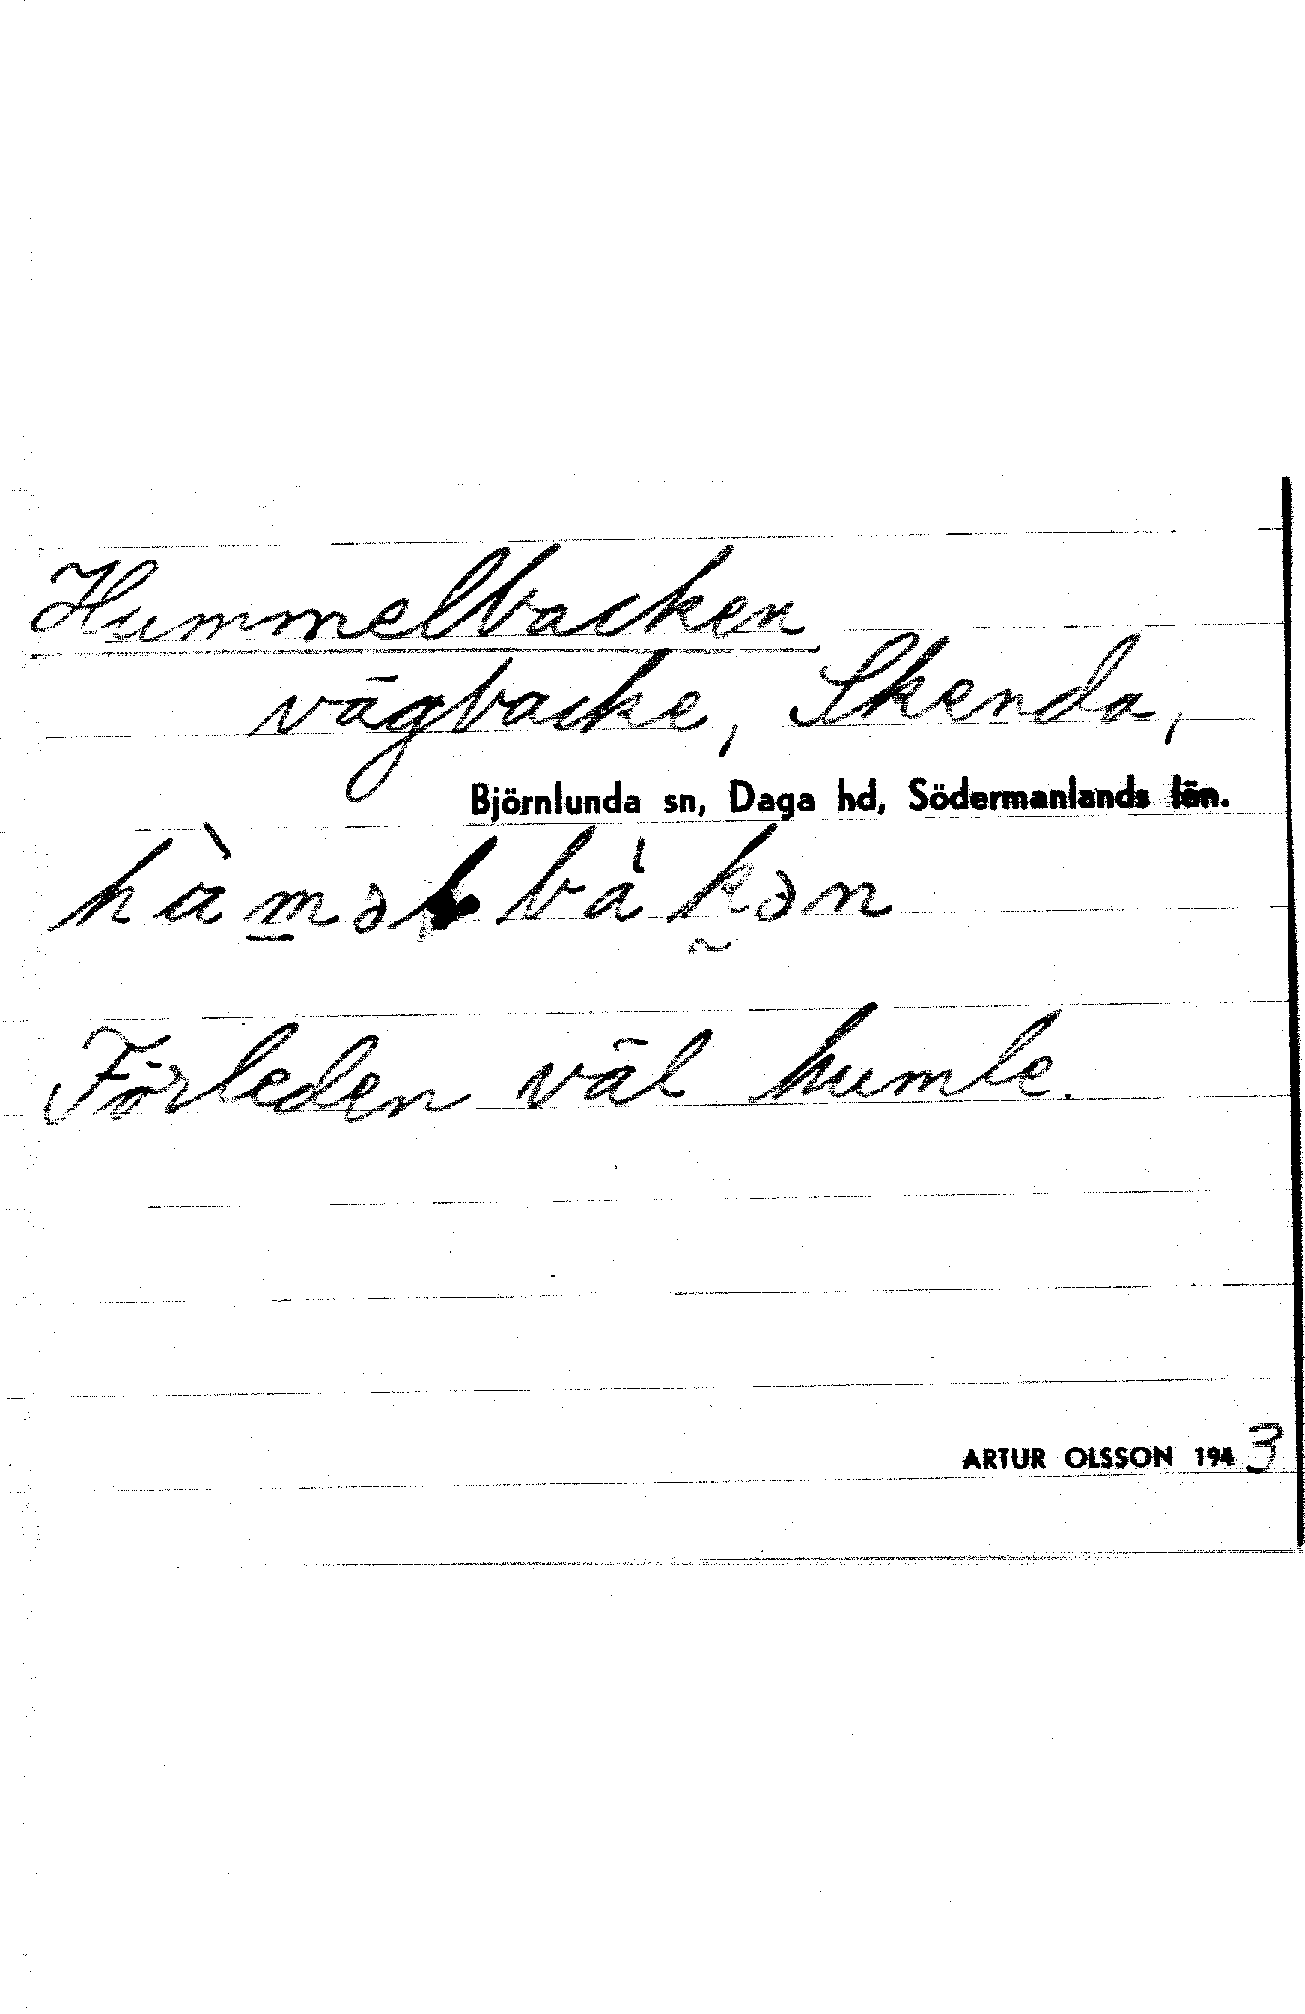 Hummelbacken
vägbacke, Skenda,
Björnlunda sn, Daga hd, Södermanlands län.
bákən
Förleden väl humle.
ARTUR OLSSON 1943